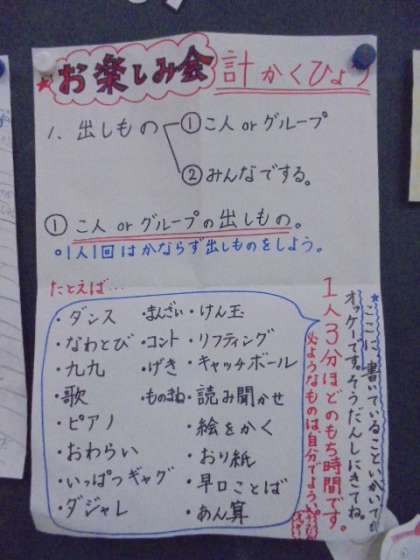 ★お楽しみ会 計かくひょう
1. 出しもの ①こ人 or グループ
②みんなでする。
① こ人 or グループの出しもの。
○1人1回はかならず出しものをしよう。
たとえば…
・ダンス ・まんざい ・けん玉
・なわとび ・コント ・リフティング
・九九 ・げき ・キャッチボール
・歌 ・ものまね ・読み聞かせ
・ピアノ ・絵をかく
・おわらい ・おり紙
・いっぱつギャグ ・早口ことば
・ダジャレ ・あん算
★ここに書いていること いがいでも
オッケーです。そうだんしにきてね。
1人3分ほどのもち時間です。
ひつようなものは、自分でようい